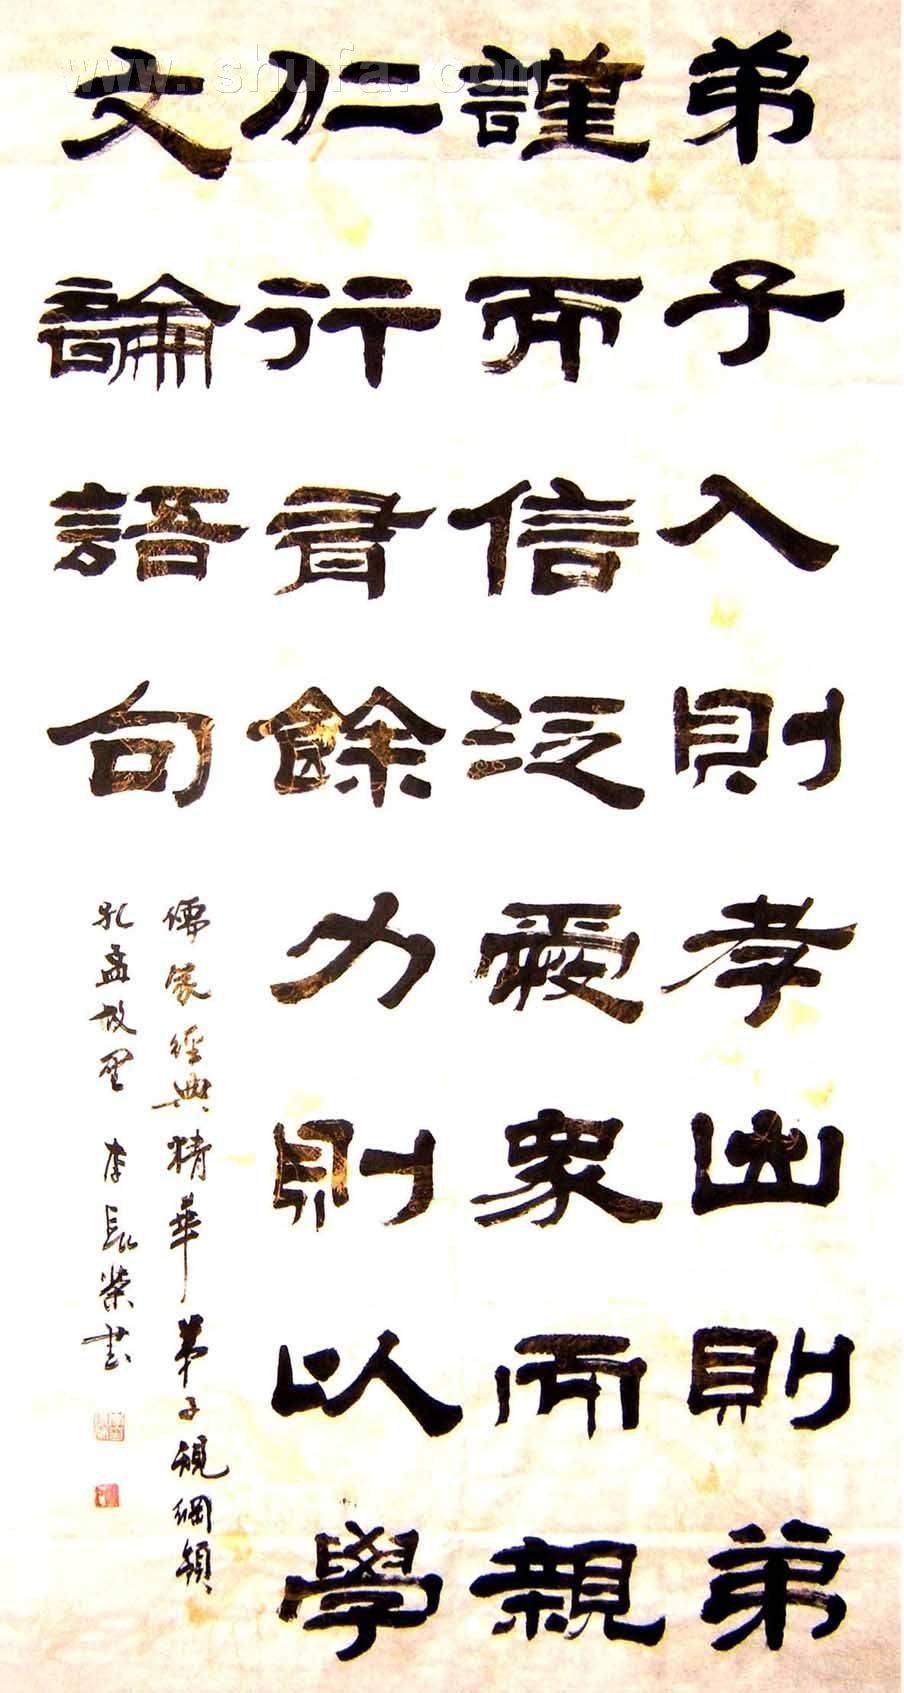 弟子入則孝出則弟
謹而信泛愛眾而親
仁行有餘力則以學
文論語句
儒家經典精華弟子規綱領
孔孟故里 李長榮書
www.shufa.com